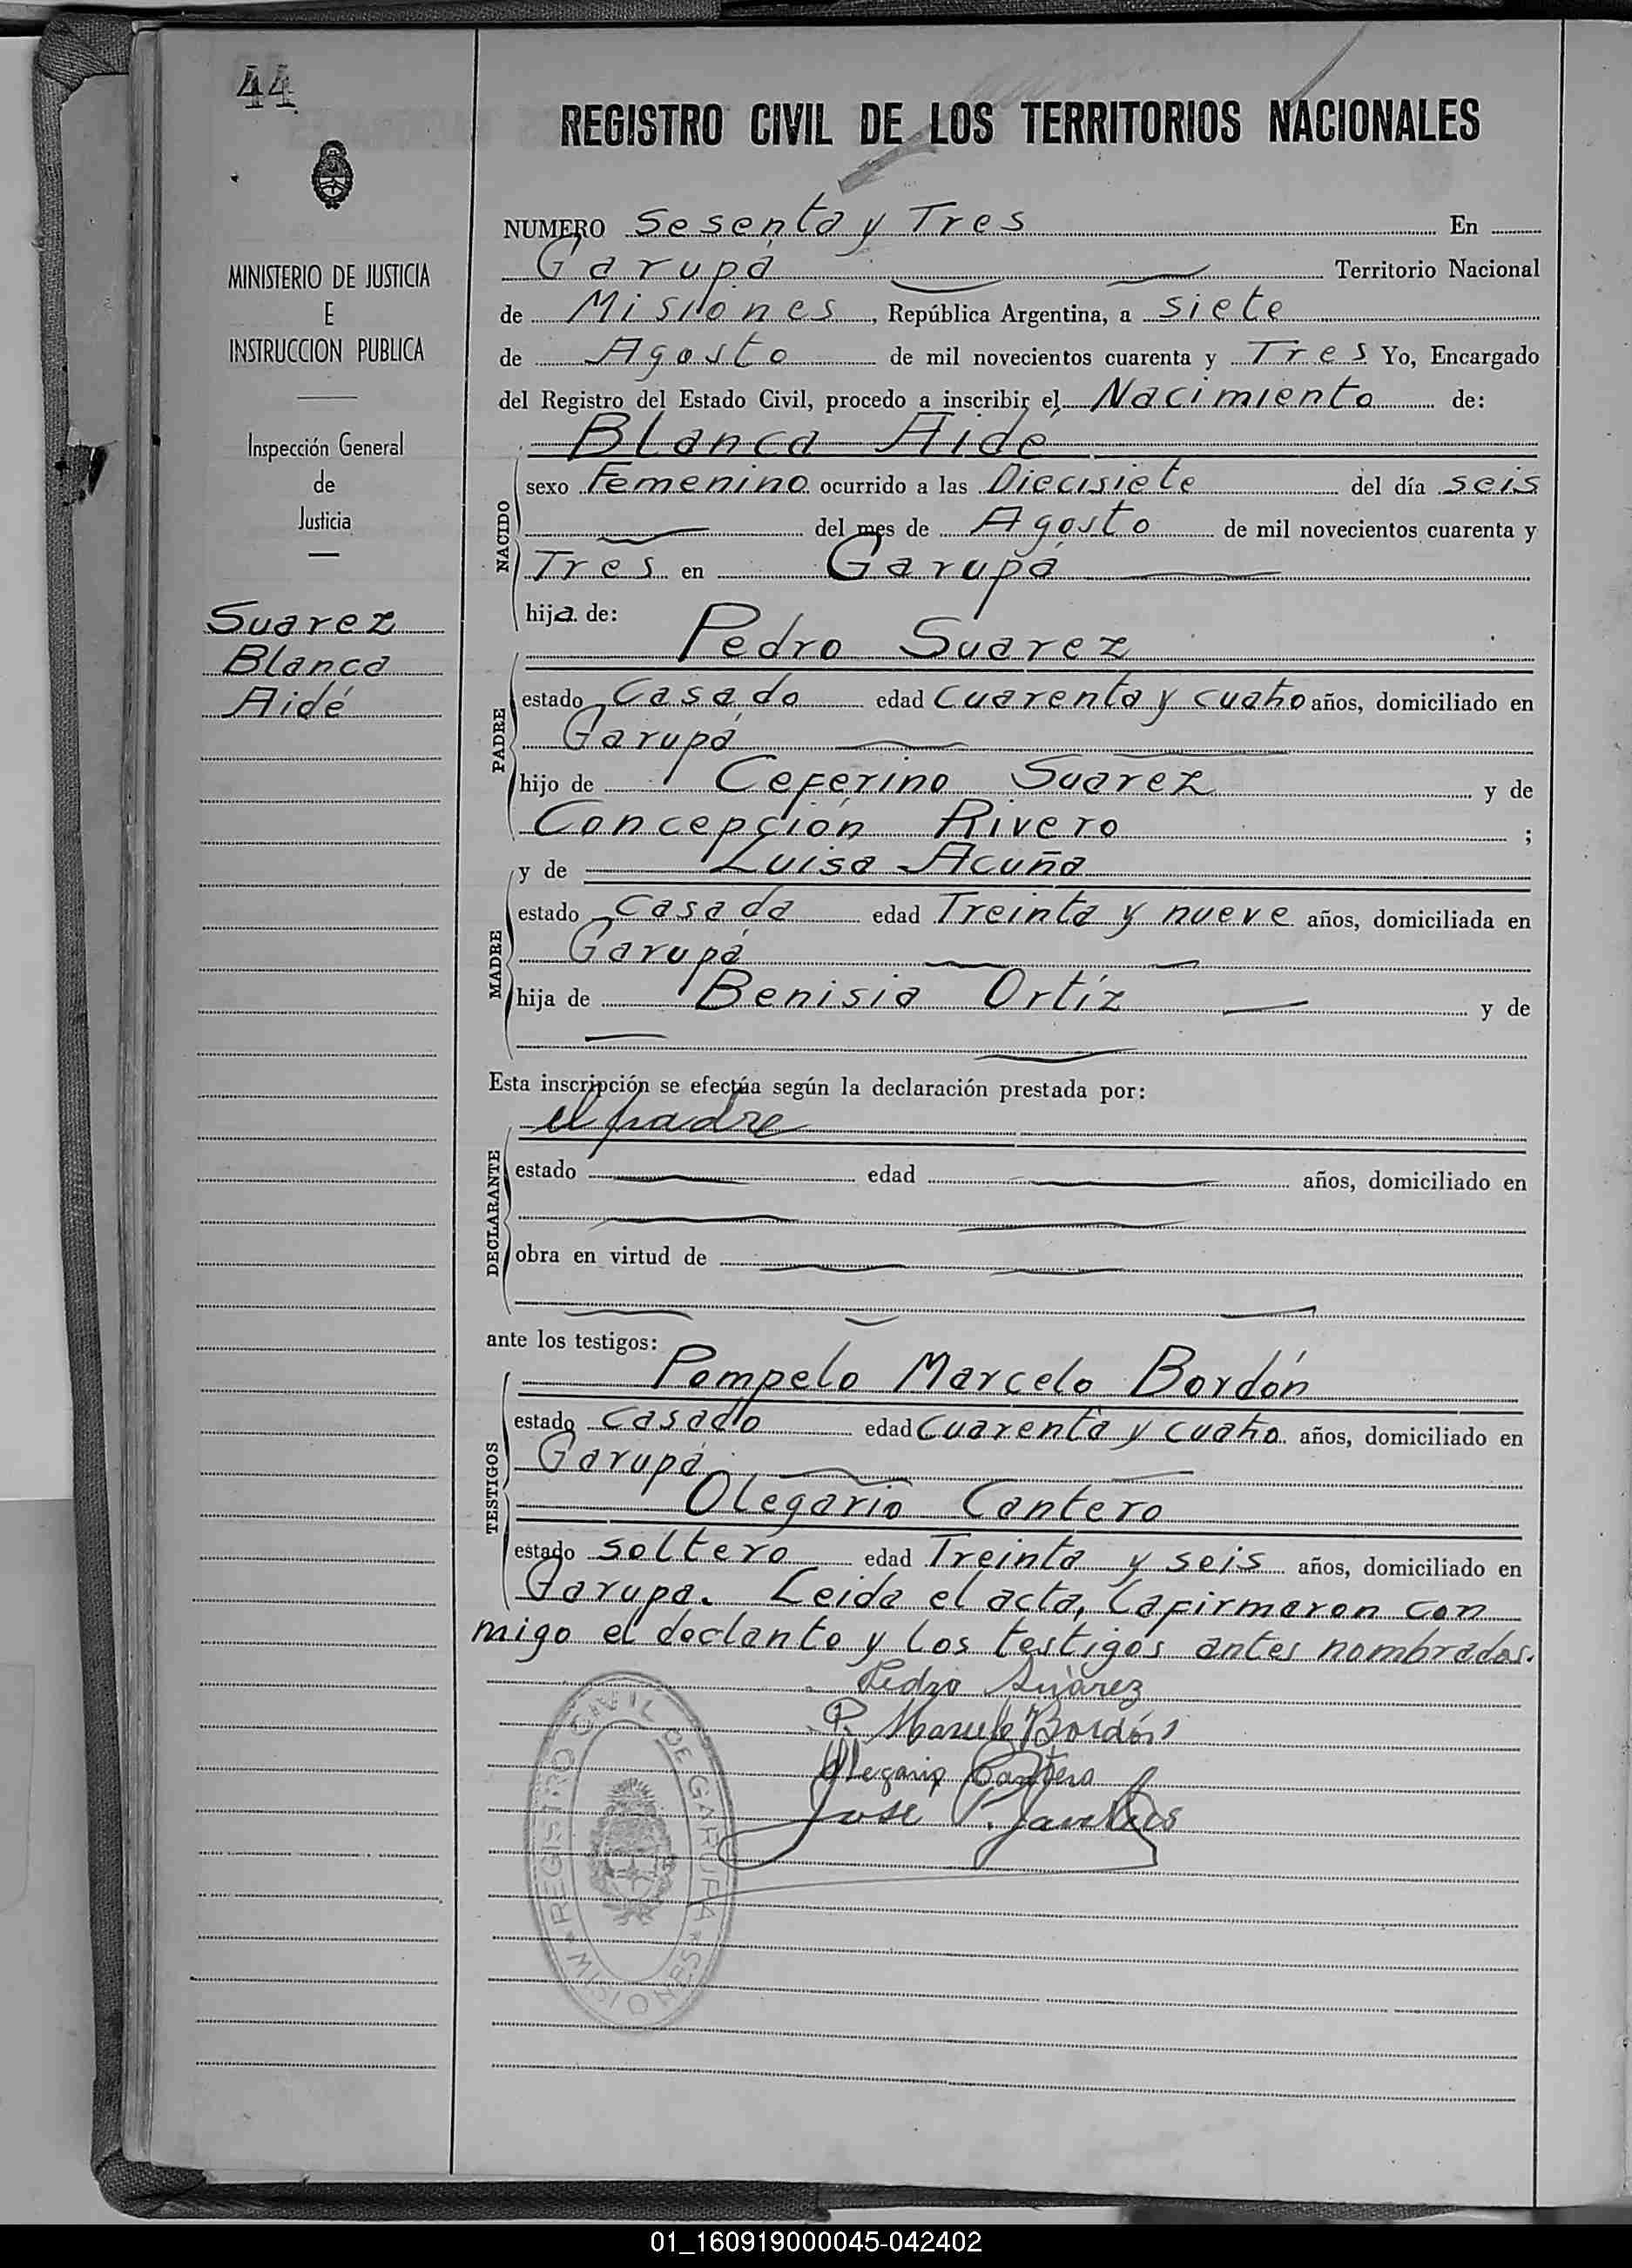 44
REGISTRO CIVIL DE LOS TERRITORIOS NACIONALES
MINISTERIO DE JUSTICIA
E
INSTRUCCION PUBLICA
Inspección General
de
Justicia
Suarez
Blanca
Aidé
NUMERO Sesenta y Tres En
Garupá Territorio Nacional
de Misiones, República Argentina, a siete
de Agosto de mil novecientos cuarenta y Tres Yo, Encargado
del Registro del Estado Civil, procedo a inscribir el Nacimiento de:
Blanca Aide
NACIDO
sexo Femenino ocurrido a las Diecisiete del día seis
del mes de Agosto de mil novecientos cuarenta y
Tres en Garupá
hija de:
Pedro Suarez
PADRE
estado Casado edad Cuarenta y cuatro años, domiciliado en
Garupá
hijo de Ceferino Suarez y de
Concepción Rivero ;
y de Luisa Acuña
MADRE
estado Casada edad Treinta y nueve años, domiciliada en
Garupá
hija de Benisia Ortíz y de
Esta inscripción se efectúa según la declaración prestada por:
el padre
DECLARANTE
estado edad años, domiciliado en
obra en virtud de
ante los testigos:
Pompelo Marcelo Bordón
TESTIGOS
estado casado edad Cuarenta y cuatro años, domiciliado en
Garupá
Olegario Cantero
estado soltero edad Treinta y seis años, domiciliado en
Garupa. Leida el acta, la firmaron con
migo el declante y los testigos antes nombrados.
Pedro Suárez
P. Marcelo Bordón
Olegario Cantero
Jose P.
REGISTRO CIVIL DE GARUPA * MISIONES *
01_160919000045-042402